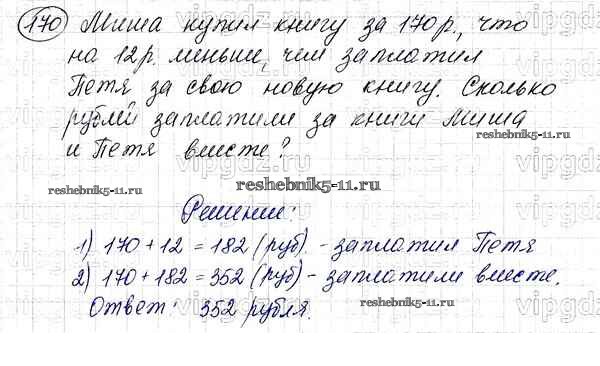 170 Миша купил книгу за 170 р., что
на 12 р. меньше, чем заплатил
Петя за свою новую книгу. Сколько
рублей заплатили за книги Миша
и Петя вместе?
reshebnik5-11.ru
reshebnik5-11.ru
reshebnik5-11.ru
Решение:
1) 170 + 12 = 182 (руб). - заплатил Петя
2) 170 + 182 = 352 (руб) - заплатили вместе.
Ответ: 352 рубля.
reshebnik5-11.ru
vipgdz